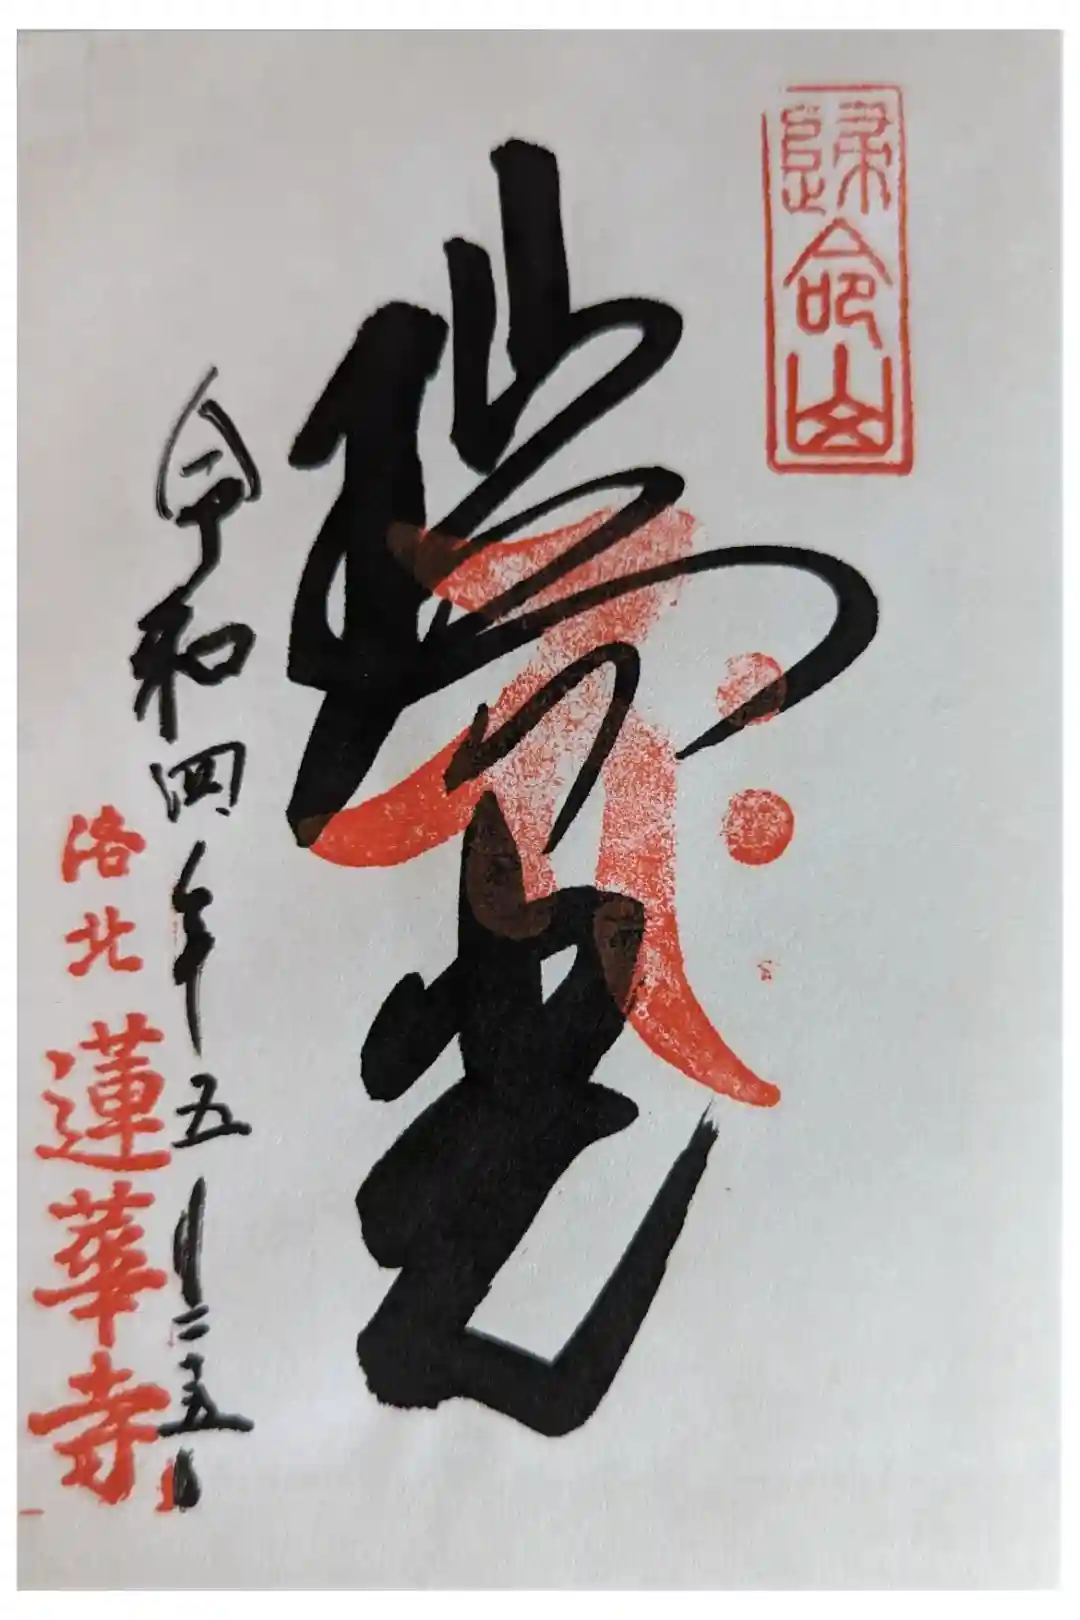 歸命山
瑞光
令和四年五月二十五日
洛北 蓮華寺